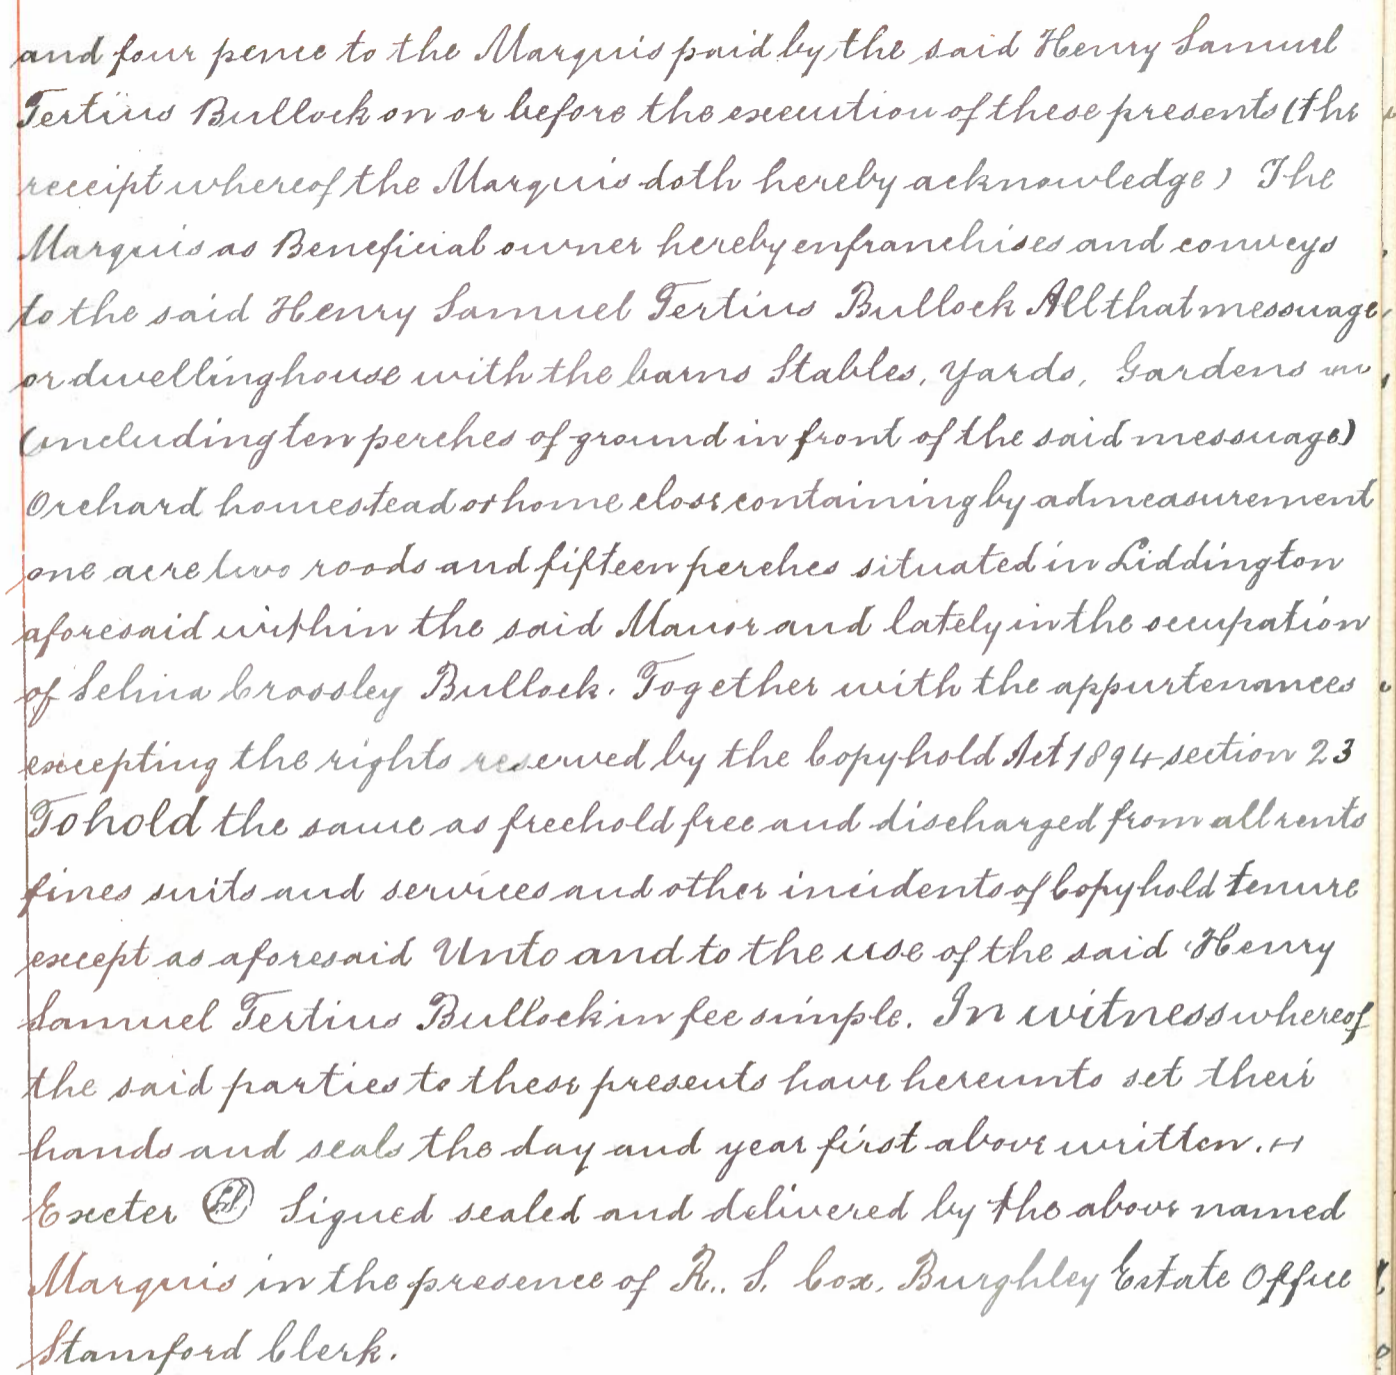 and four pence to the Marquis paid by the said Henry Samuel
Tertius Bullock on or before the execution of these presents (the
receipt whereof the Marquis doth hereby acknowledge) The
Marquis as Beneficial owner hereby enfranchises and conveys
to the said Henry Samuel Tertius Bullock All that messuage
or dwellinghouse with the barns Stables, Yards, Gardens
(including ten perches of ground in front of the said messuage)
Orchard homestead or home close containing by admeasurement
one acre two roods and fifteen perches situated in Liddington
aforesaid within the said Manor and lately in the occupation
of Selina Crossley Bullock. Together with the appurtenances
excepting the rights reserved by the Copyhold Act 1894 section 23
To hold the same as freehold free and discharged from all rents
fines suits and services and other incidents of Copyhold tenure
except as aforesaid Unto and to the use of the said Henry
Samuel Tertius Bullock in fee simple. In witness whereof
the said parties to these presents have hereunto set their
hands and seals the day and year first above written.
Exeter Signed sealed and delivered by the above named
Marquis in the presence of R.. S. Cox, Burghley Estate Office
Stamford Clerk.